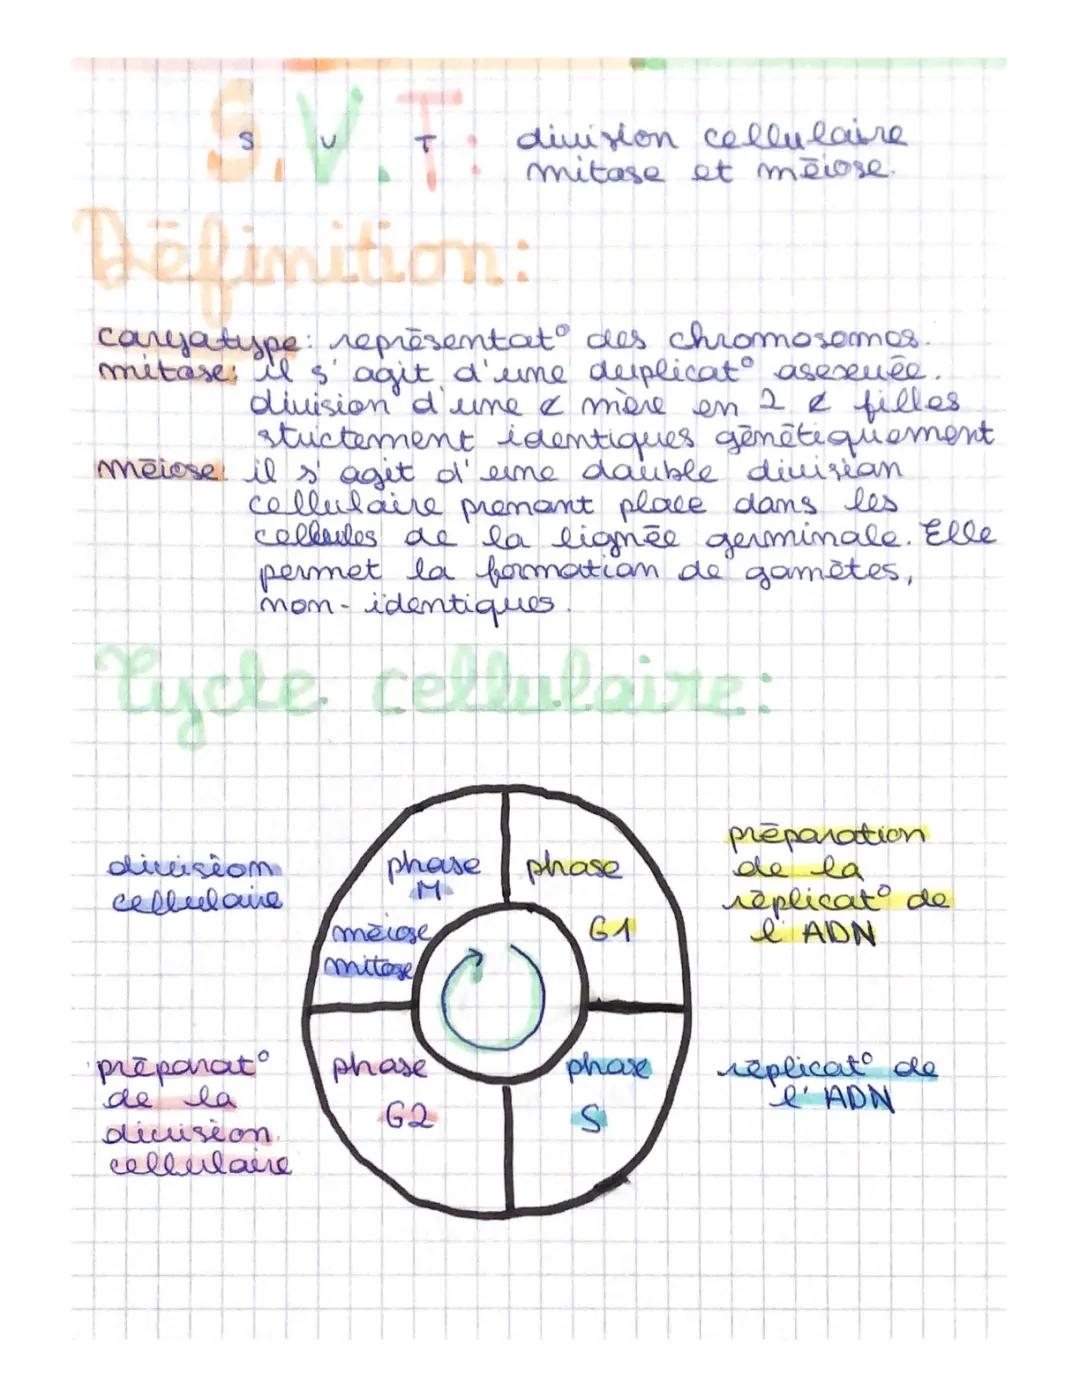 S.V.T:
S V T
division cellulaire
mitose et mēiose.
Dēfinition:
caryotype: reprēsentat° des chromosomes.
mitose: il s'agit d'une duplicat° asexuēe.
division d'une ¢ mère en 2 ¢ filles
strictement identiques gēnētiquement
mēiose: il s'agit d'une double division
cellulaire prenant place dans les
cellules de la lignēe germinale. Elle
permet la formation de gamētes,
non-identiques.
Cycle cellulaire:
division
cellulaire
phase
M
mēiose
mitose
phase
G1
prēparation
de la
rēplicat° de
l'ADN
prēparat°
de la
division
cellulaire
phase
G2
phase
S
rēplicat° de
l'ADN